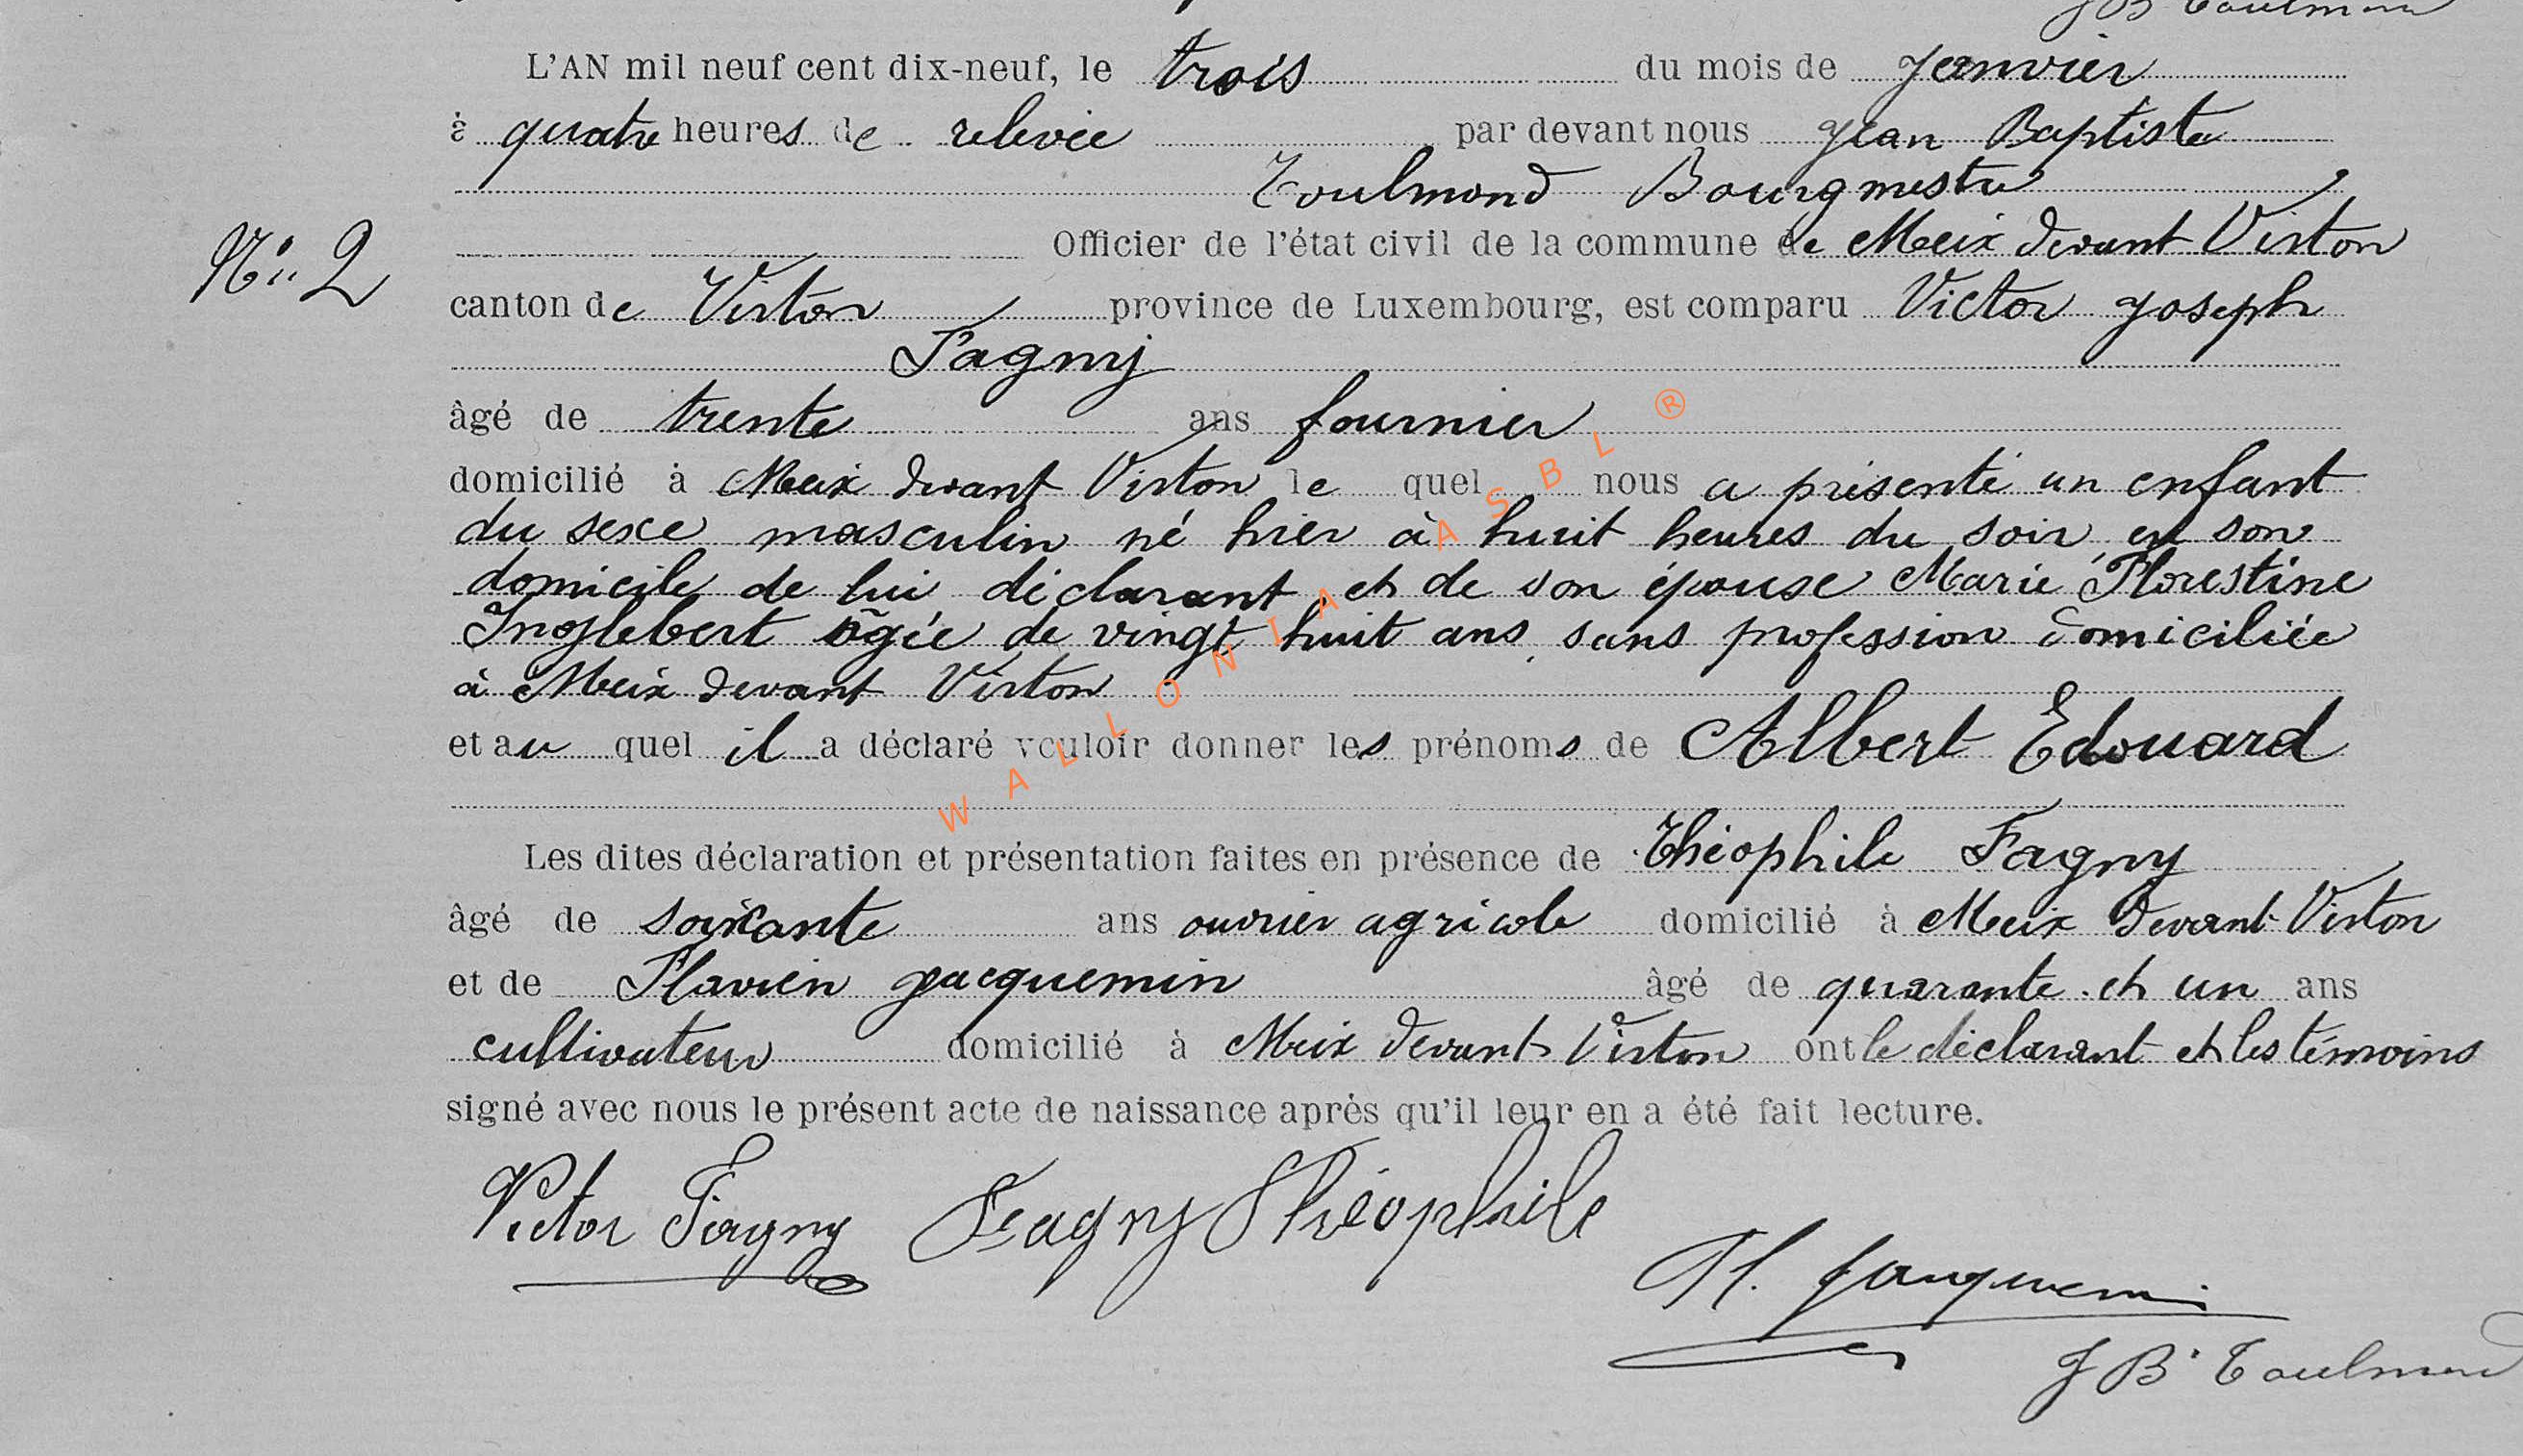 J B Toulmond
L'AN mil neuf cent dix-neuf, le trois du mois de Janvier
à quatre heures de relevée par devant nous Jean Baptiste
Toulmond Bourgmestre
Officier de l'état civil de la commune de Meix devant Virton
N° 2
canton de Virton province de Luxembourg, est comparu Victor Joseph
Fagny
âgé de trente ans fournier
domicilié à Meix devant Virton le quel nous a présenté un enfant
du sexe masculin né hier à huit heures du soir, en son
domicile de lui déclarant, et de son épouse Marie Florestine
Inglebert âgée de vingt huit ans, sans profession domiciliée
à Meix devant Virton
et au quel il a déclaré vouloir donner les prénoms de Albert Edouard
Les dites déclaration et présentation faites en présence de Théophile Fagny
âgé de soixante ans ouvrier agricole domicilié à Meix devant Virton
et de Flavien Jacquemin âgé de quarante et un ans
cultivateur domicilié à Meix devant Virton ont le déclarant et les témoins
signé avec nous le présent acte de naissance après qu'il leur en a été fait lecture.
Victor Fagny Fagny Théophile
Fl. Jacquemin
J B Toulmond
WALLONIA ASBL ®